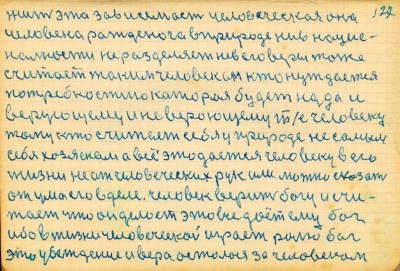 122
жит эта зависимаст человеческая она
человека ражденога вприроде нив нацио-
налности неразделяет нивеговери тоже
считает таким человекам кто нуждается
потребностю которая будет на да и
верующему и неверующему т/е человеку
таму кто считает себя у природе не самым
себя хозяенам а всё это дается человеку в его
жизни не от человеческих рук или можно сказат
от ума его вделе. человек верит богу и счи-
тает что он делает это все даёт ему бог
ибо в жизни человеческой играет ролю бог
это убеждение и вера осталося за человекам